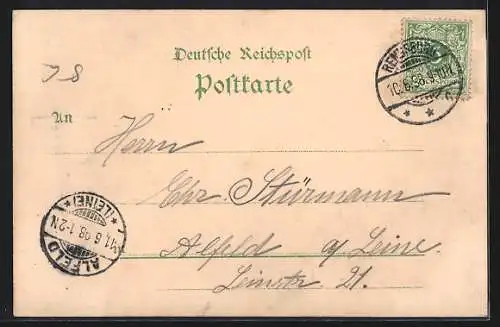 J 8
Deutsche Reichspost
Postkarte
RENDSBURG
10.6.98.9-10V.
An
Herrn
Chr. Stürmann
Alfeld a/Leine
Leinstr. 21.
ALFELD
11.6.98.1-2N
*(LEINE)*